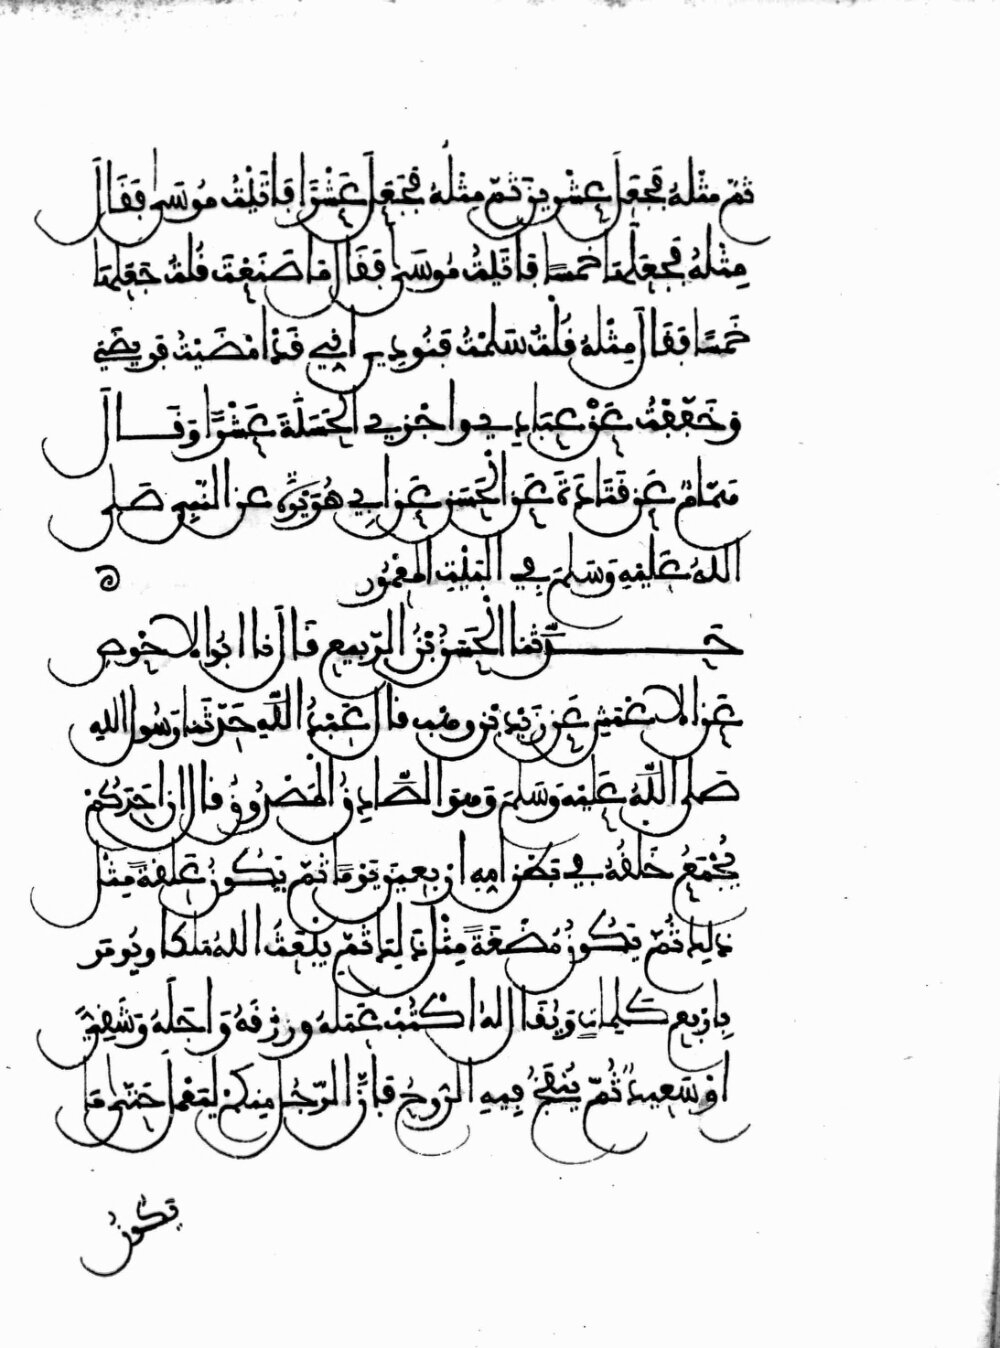 ثُمَّ مِثْلَهُ فَجَعَلَ عِشْرِينَ ثُمَّ مِثْلَهُ فَجَعَلَ عَشْرًا فَأَتَيْتُ مُوسَى فَقَالَ
مِثْلَهُ فَجَعَلَهَا خَمْسًا فَأَتَيْتُ مُوسَى فَقَالَ مَا صَنَعْتَ قُلْتُ جَعَلَهَا
خَمْسًا فَقَالَ مِثْلَهُ قُلْتُ سَلَّمْتُ فَنُودِيَ إِنِّي قَدْ أَمْضَيْتُ فَرِيضَتِي
وَخَفَّفْتُ عَنْ عِبَادِي وَأَجْزِي الْحَسَنَةَ عَشْرًا وَقَالَ
هَمَّامٌ عَنْ قَتَادَةَ عَنِ الْحَسَنِ عَنْ أَبِي هُرَيْرَةَ عَنِ النَّبِيِّ صَلَّى
اللهُ عَلَيْهِ وَسَلَّمَ فِي الْبَيْتِ الْمَعْمُورِ
حَدَّثَنَا الْحَسَنُ بْنُ الرَّبِيعِ قَالَ نَا أَبُو الْأَحْوَصِ
عَنِ الْأَعْمَشِ عَنْ زَيْدِ بْنِ وَهْبٍ قَالَ عَبْدُ اللَّهِ حَدَّثَنَا رَسُولُ اللهِ
صَلَّى اللَّهُ عَلَيْهِ وَسَلَّمَ وَهُوَ الصَّادِقُ الْمَصْدُوقُ قَالَ إِنَّ أَحَدَكُمْ
يُجْمَعُ خَلْقُهُ فِي بَطْنِ أُمِّهِ أَرْبَعِينَ يَوْمًا ثُمَّ يَكُونُ عَلَقَةً مِثْلَ
ذَلِكَ ثُمَّ يَكُونُ مُضْغَةً مِثْلَ ذَلِكَ ثُمَّ يَبْعَثُ اللهُ مَلَكًا وَيُومَرُ
بِأَرْبَعِ كَلِمَاتٍ وَيُقَالُ لَهُ اكْتُبْ عَمَلَهُ وَرِزْقَهُ وَأَجَلَهُ وَشَقِيٌّ
أَوْ سَعِيدٌ ثُمَّ يُنْفَخُ فِيهِ الرُّوحُ فَإِنَّ الرَّجُلَ مِنْكُمْ لَيَعْمَلُ حَتَّى مَا
يَكُونُ